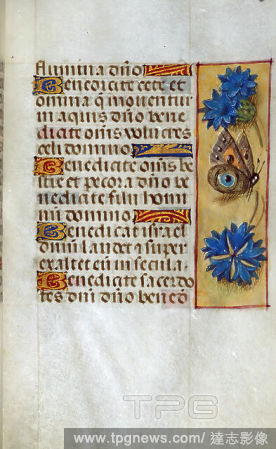 flumina dño
Benedicite cete et
omnia q̃ mouentur
in aquis dño bene
dicite om̃s volucres
celi domino
Benedicite om̃s be
stie et pecora dño be
nedicite filii homi
nũ domino
Benedicat israel
dñm laudet et super
exaltet eũ in secula.
Benedicite sacerdo
tes dñi dño bened̃
TPG
www.tpgnews.com/ 達志影像